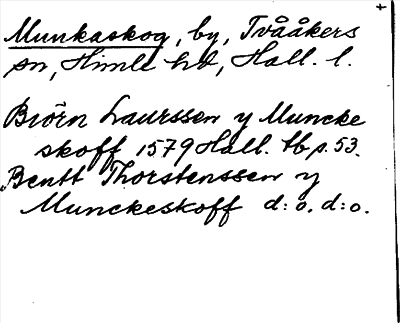 +
Munkaskog, by, Tvååkers
sn, Himle hd, Hall. l.
Biörn Laurssen y Muncke
skoff 1579 Hall. tb p. 53.
"Bentt Thorstenssen y
Munckeskoff d:o. d:o.